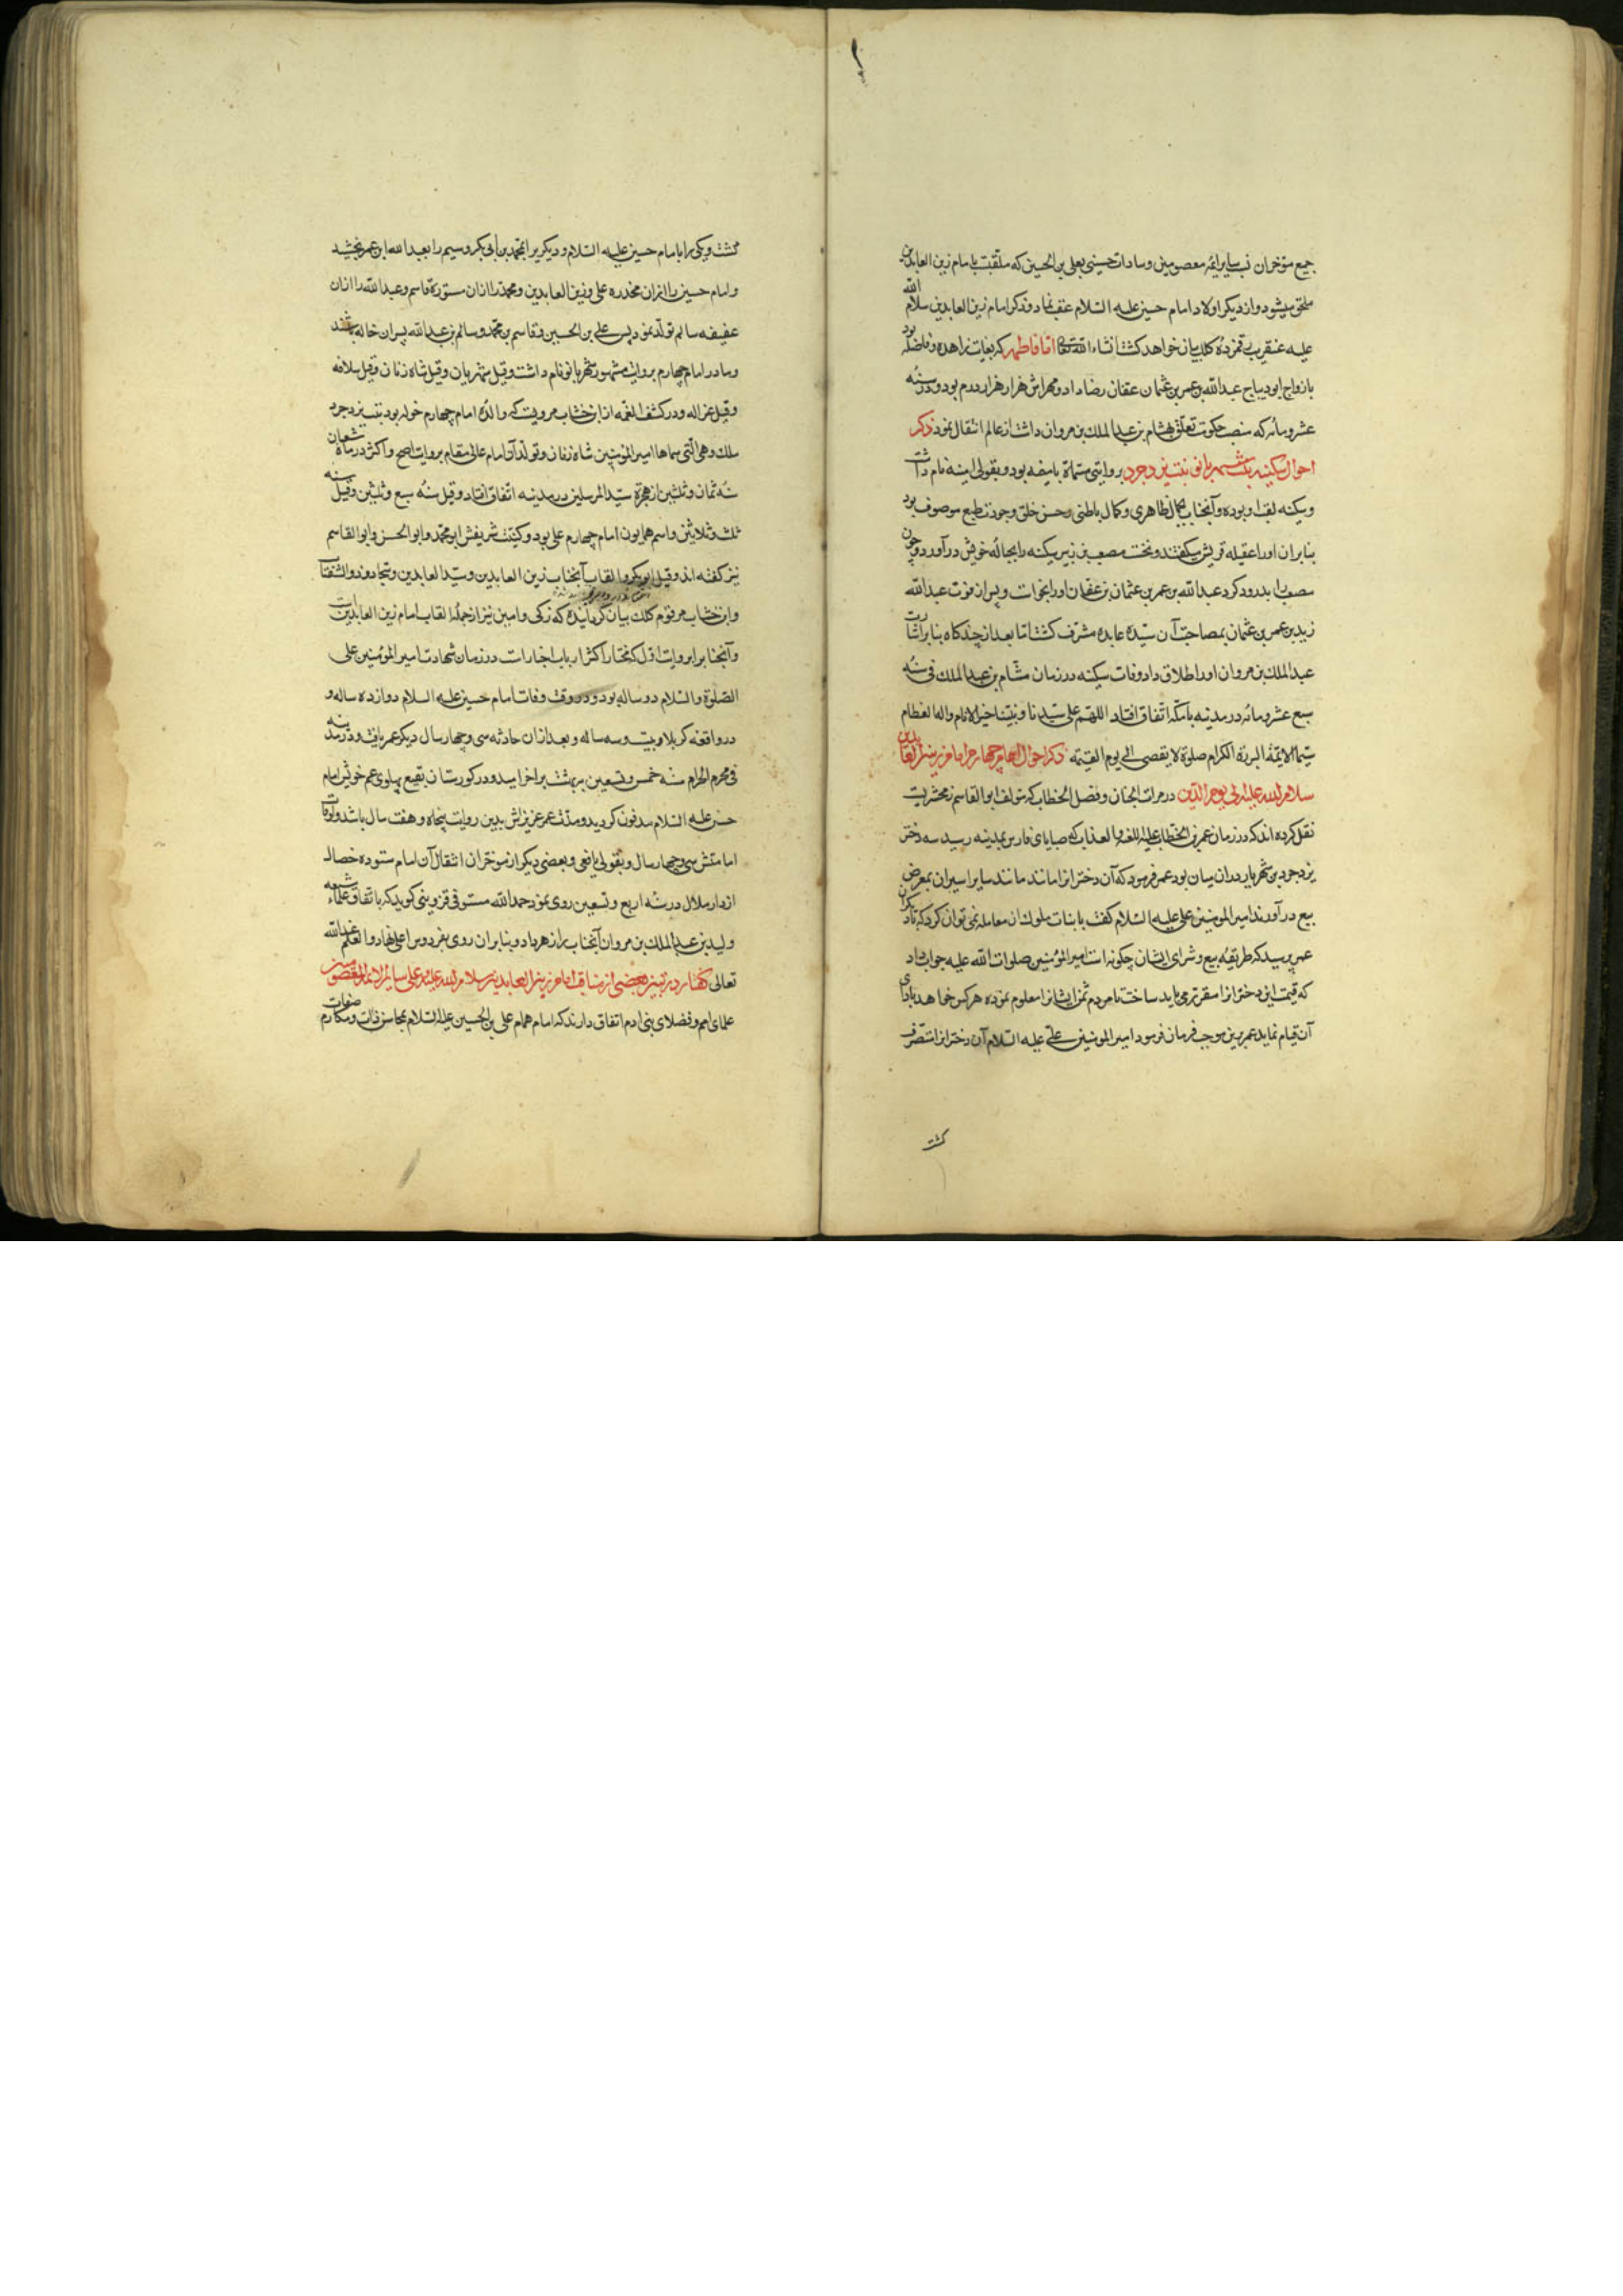 جمیع مؤخران نسب سایر ائمه معصومین و سادات حسینی بعلی بن الحسین که ملقبت بامام زین العابدین
ملحق میشود و از دیکر اولاد امام حسین علیه السلام عقب نماند و ذکر امام زین العابدین سلام الله
علیه عنقریب رقمزده کلک بیان خواهد کشت انشاء الله تعالی اما فاطمه که بغایت زاهده و فاضله بود
بازواج ابو دیباج عبدالله بن عمر بن عثمان عفان رضا داد و مهرش هزار هزار درم بود و در سنه
عشر و مائه که منصب حکومت تعلق بهشام بن عبدالملک بن مروان داشت از عالم انتقال نمود ذکر
احوال سکینه بنت شهر بانو بنت یزدجرد بروایتی مسماة بامیمه بود و بقولی امینه نام داشت
و سکینه لقب او بوده و آنجناب بجمال ظاهری و کمال باطنی و حسن خلق و جودت طبع موصوف بود
بنابران او را عقیله قریش میکفتند و نخست مصعب بن زبیر سکینه را بحباله خویش در آورد و چون
مصعب را بدرود کرد عبدالله بن عمر بن عثمان بن عفان او را بخواست و پس از فوت عبدالله
زید بن عمر بن عثمان بمصاحبت آن سیده عابده مشرف کشت اما بعد از چند کاه بنابر اشارت
عبدالملک بن مروان او را طلاق داد وفات سکینه در زمان هشام بن عبدالملک فی سنه
سبع عشر و مائه در مدینه یا مکه اتفاق افتاد اللهم علی سیدنا و نبینا خیر الانام و اله العظام
سیما الایمة البررة الکرام صلوة لا یقصی الی یوم القیمة ذکر احوال امام چهارم امام زین العابدین
سلام الله علیه الی یوم الدین در مرات الجنان و فصل الخطاب که مؤلف ابو القاسم زمخشریست
نقل کرده اند که در زمان عمر بن الخطاب علیه اللغه و العذاب که صبایای فارس بمدینه رسید سه دختر
یزدجرد بن شهریار دران میان بود عمر فرمود که آن دخترانرا مانند سایر اسیران بمعرض
بیع در آورند امیر المومنین علی علیه السلام کفت با بنات ملوک ان معامله نمی توان کرد که با دیکران
عمر پرسید که طریقه بیع و شرای ایشان چکونه است امیر المؤمنین صلوات الله علیه جواب داد
که قیمت این دخترانرا مقرر می باید ساخت تا مردم ثمن ایشانرا معلوم نموده هر کس خواهد بادای
آن قیام نماید عمر برین موجب فرمان فرمود امیر المومنین علی علیه السلام آن دخترانرا متصرف
کشت
کشت و یکی را بامام حسین علیه السلام و دیکریرا بمحمد بن ابی بکر و سیم را بعبدالله ابن عمر بخشید
و امام حسین را ازان مخدره علی و زین العابدین و محمد را ازان مستوره قاسم و عبدالله را ازان
عفیفه سالم تولد نمود پس علی بن الحسین و قاسم بن محمد و سالم بن عبدالله پسران خاله باشند
و مادر امام چهارم بروایت مشهور شهربانو نام داشت و قیل شهربان و قیل شاه زنان و قیل سلافه
و قیل غزاله و در کشف الغمه از ابن خشاب مرویست که والده امام چهارم خوله بود بنت یزدجرد
ملک و هی التی سماها امیر المؤمنین شاه زنان و تولد آن امام عالی مقام بروایت اصح و اکثر در ماه شعبان
سنه ثمان و ثلثین از هجرة سید المرسلین در مدینه اتفاق افتاد و قیل سنه سبع و ثلثین و قیل سنه
ثلث و ثلاثین و اسم همایون امام چهارم علی بود و کنیت شریفش ابو محمد و ابو الحسن و ابو القاسم
نیز کفته اند و قیل ابو بکر و القاب آنجناب زین العابدین و سید العابدین و سجاد و ذو الثفنات
و ابن خشاب مرقوم کلک بیان کردانیده که زکی و امین نیز از جمله القاب امام زین العابدینست
و آنجناب بروایت اول که مختار اکثر ارباب اخبارات در زمان شهادت امیر المؤمنین علی
الصلوة و السلام دو ساله بود و در وقت وفات امام حسن علیه السلام دوازده ساله و
در واقعه کربلا بیست و سه ساله و بعد ازان حادثه سی و چهار سال دیکر عمر یافت و در مدینه
فی محرم الحرام سنه خمس و تسعین بریاض بهشت خرامید و در کورستان بقیع پهلوی عم خویش امام
حسن علیه السلام مدفون کردید و مدت عمر عزیزش بدین روایت پنجاه و هفت سال باشد و اوقات
امامتش سی و چهار سال و بقول یافعی و بعضی دیکر از مؤخران انتقال آن امام ستوده خصال
از دار ملال در سنه اربع و تسعین روی نمود حمدالله مستوفی قزوینی کوید که باتفاق علماء شیعه
ولید بن عبدالملک بن مروان آنجناب را زهر داد و بنابران روی بفردوس اعلی نهاد و العلم عند الله
تعالی کفتار در تبین بعضی از مناقب امام زین العابدین سلام الله علیه و علی سایر الائمه المعصومین
علمای امم و فضلای بنی ادم اتفاق دارند که امام همام علی بن الحسین علیه السلام بمحاسن صفات و مکارم